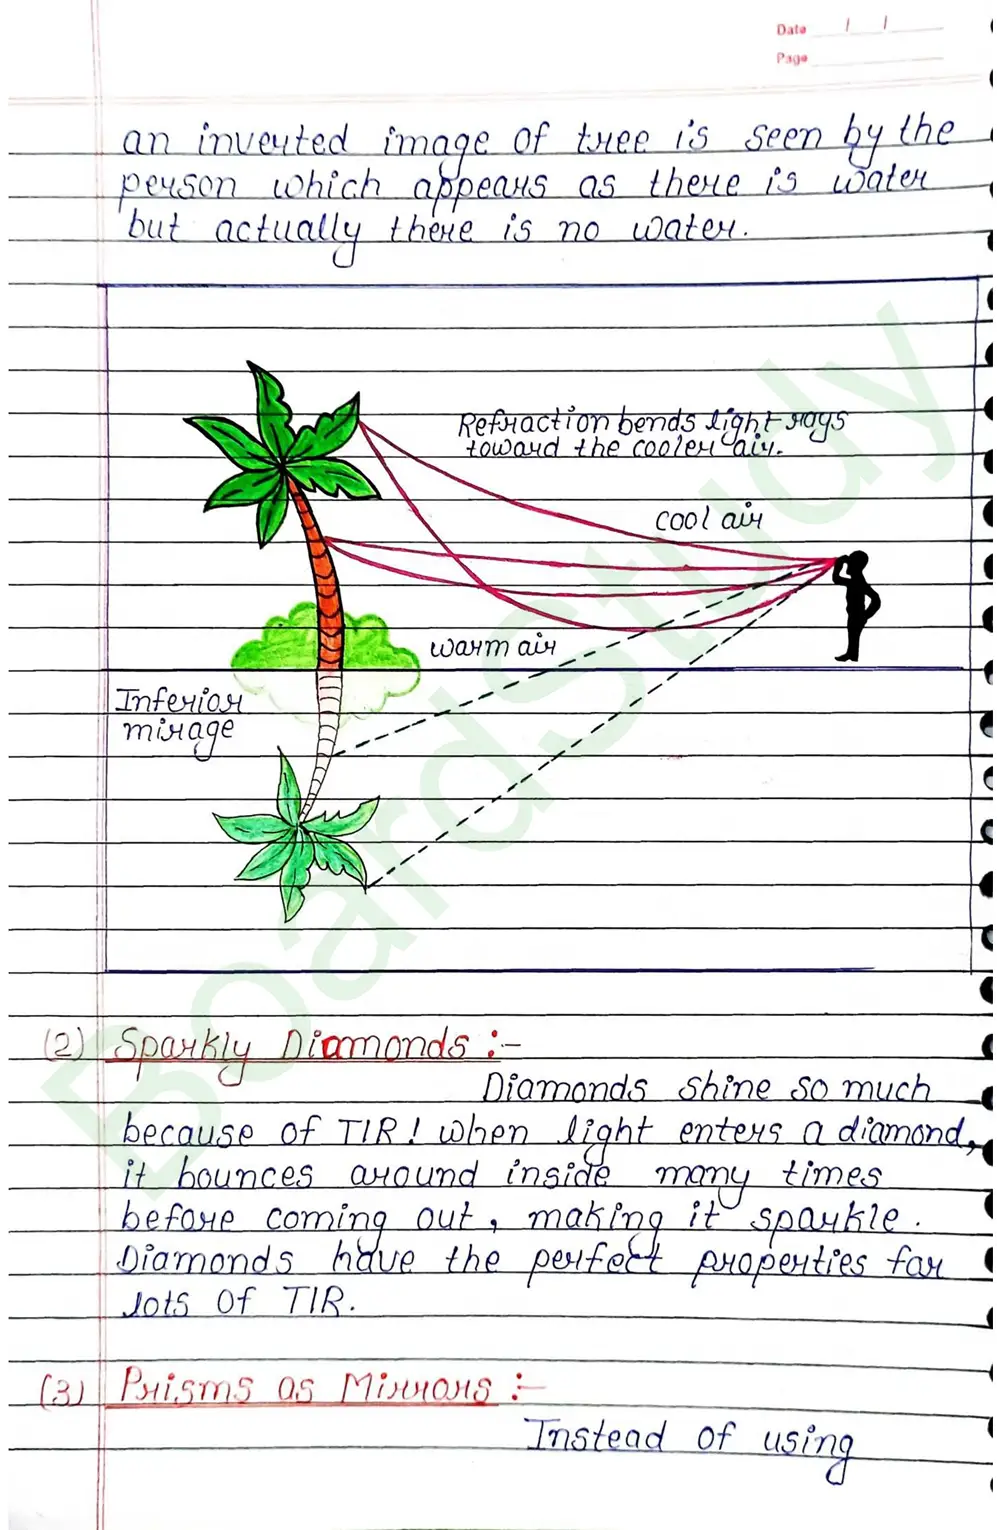 Date
Page
an inverted image of tree is seen by the
person which appears as there is water
but actually there is no water.
Refraction bends light rays
toward the cooler air.
cool air
warm air
Inferior
mirage
BoardStudy
(2) Sparkly Diamonds :-
Diamonds shine so much
because of TIR! When light enters a diamond,
it bounces around inside many times
before coming out, making it sparkle.
Diamonds have the perfect properties for
lots of TIR.
(3) Prisms as Mirrors :-
Instead of using